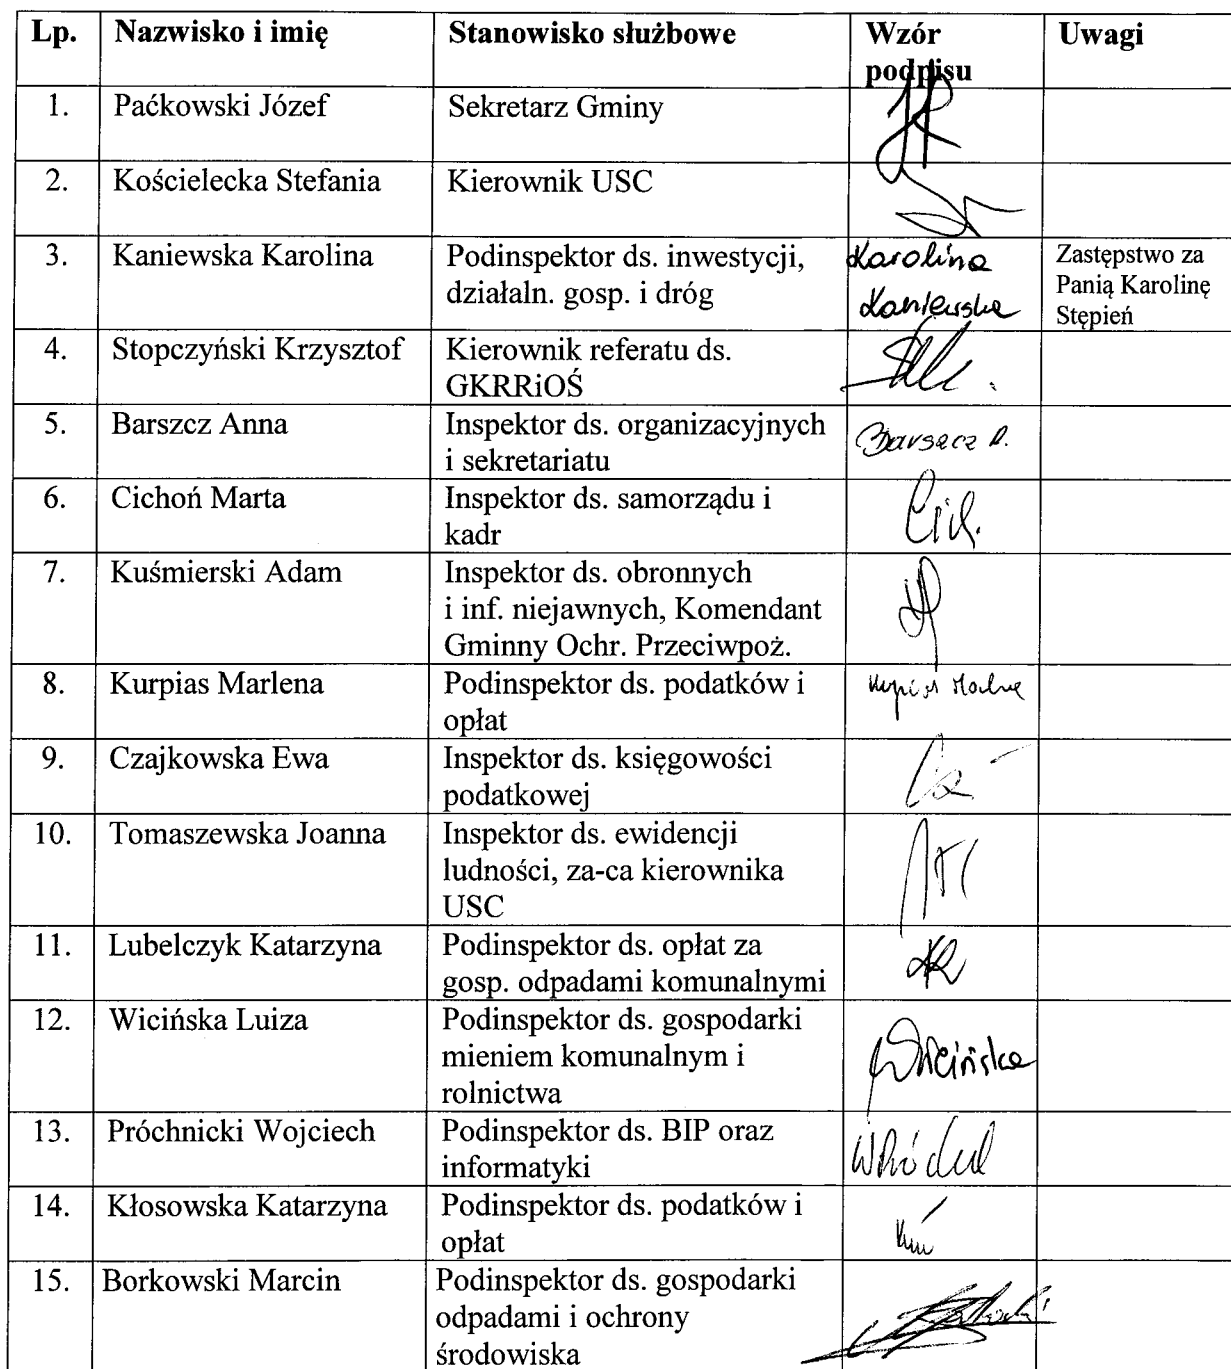 Lp. Nazwisko i imię Stanowisko służbowe Wzór Uwagi
podpisu
1. Paćkowski Józef Sekretarz Gminy
2. Kościelecka Stefania Kierownik USC
3. Kaniewska Karolina Podinspektor ds. inwestycji, Karolina Zastępstwo za
działaln. gosp. i dróg Kaniewska Panią Karolinę
Stępień
4. Stopczyński Krzysztof Kierownik referatu ds.
GKRRiOŚ
5. Barszcz Anna Inspektor ds. organizacyjnych Barszcz A.
i sekretariatu
6. Cichoń Marta Inspektor ds. samorządu i
kadr
7. Kuśmierski Adam Inspektor ds. obronnych
i inf. niejawnych, Komendant
Gminny Ochr. Przeciwpoż.
8. Kurpias Marlena Podinspektor ds. podatków i Kurpias Marlena
opłat
9. Czajkowska Ewa Inspektor ds. księgowości
podatkowej
10. Tomaszewska Joanna Inspektor ds. ewidencji
ludności, za-ca kierownika
USC
11. Lubelczyk Katarzyna Podinspektor ds. opłat za
gosp. odpadami komunalnymi
12. Wicińska Luiza Podinspektor ds. gospodarki
mieniem komunalnym i Wicińska
rolnictwa
13. Próchnicki Wojciech Podinspektor ds. BIP oraz
informatyki
14. Kłosowska Katarzyna Podinspektor ds. podatków i
opłat
15. Borkowski Marcin Podinspektor ds. gospodarki
odpadami i ochrony
środowiska